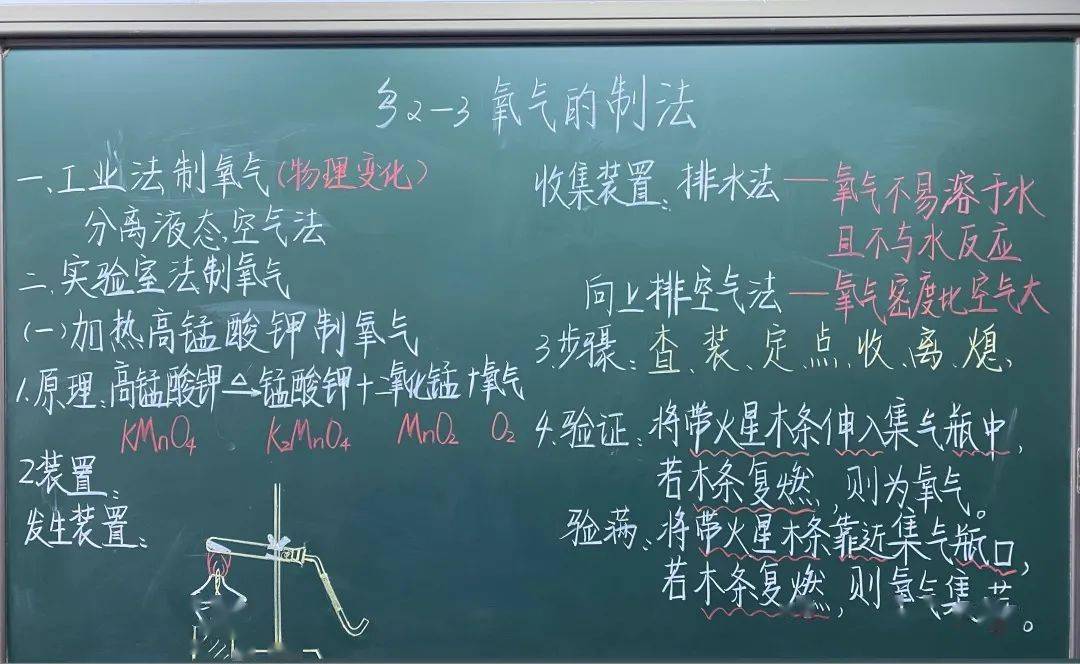 §2-3 氧气的制法
一、工业法制氧气(物理变化)
分离液态空气法
二、实验室法制氧气
(一)加热高锰酸钾制氧气
1.原理:高锰酸钾 △→ 锰酸钾+二氧化锰+氧气
KMnO₄ K₂MnO₄ MnO₂ O₂
2装置:
发生装置:
收集装置:排水法——氧气不易溶于水
且不与水反应
向上排空气法——氧气密度比空气大
3.步骤:查、装、定、点、收、离、熄、
4.验证:将带火星木条伸入集气瓶中,
若木条复燃,则为氧气。
验满:将带火星木条靠近集气瓶口,
若木条复燃,则氧气集满。